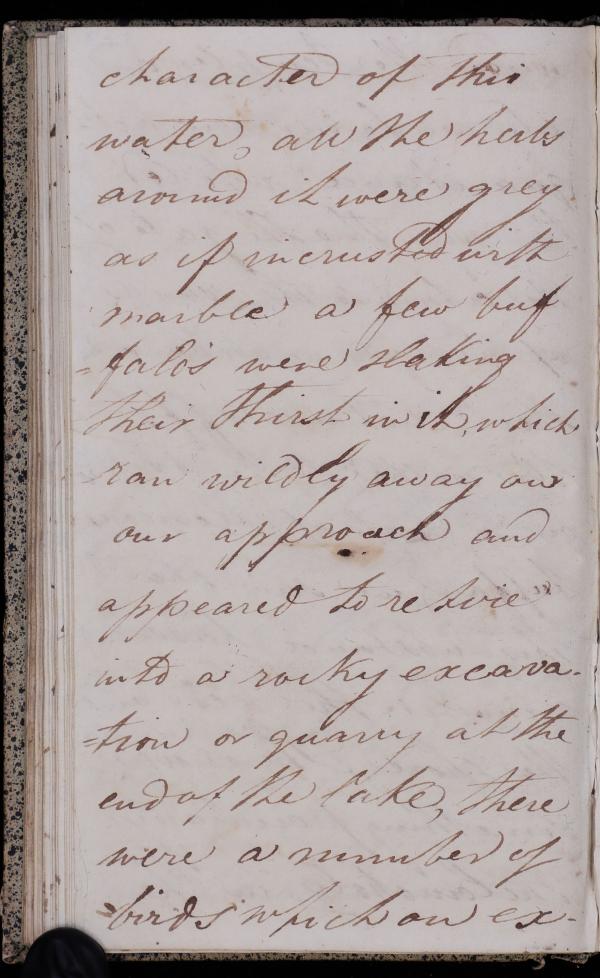 character of this
water, all the herbs
around it were grey
as if incrusted with
marble a few buf
=falo's were slaking
their thirst in it, which
ran wildly away on
our approach and
appeared to retire
into a rocky excava-
=tion or quarry at the
end of the lake, there
were a number of
birds which on ex-